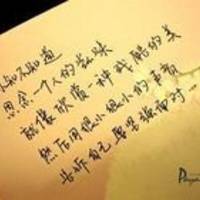 你知不知道
思念一个人的滋味
就像欣赏一种残酷的美
然后用很小很小的声音
告诉自己坚强面对